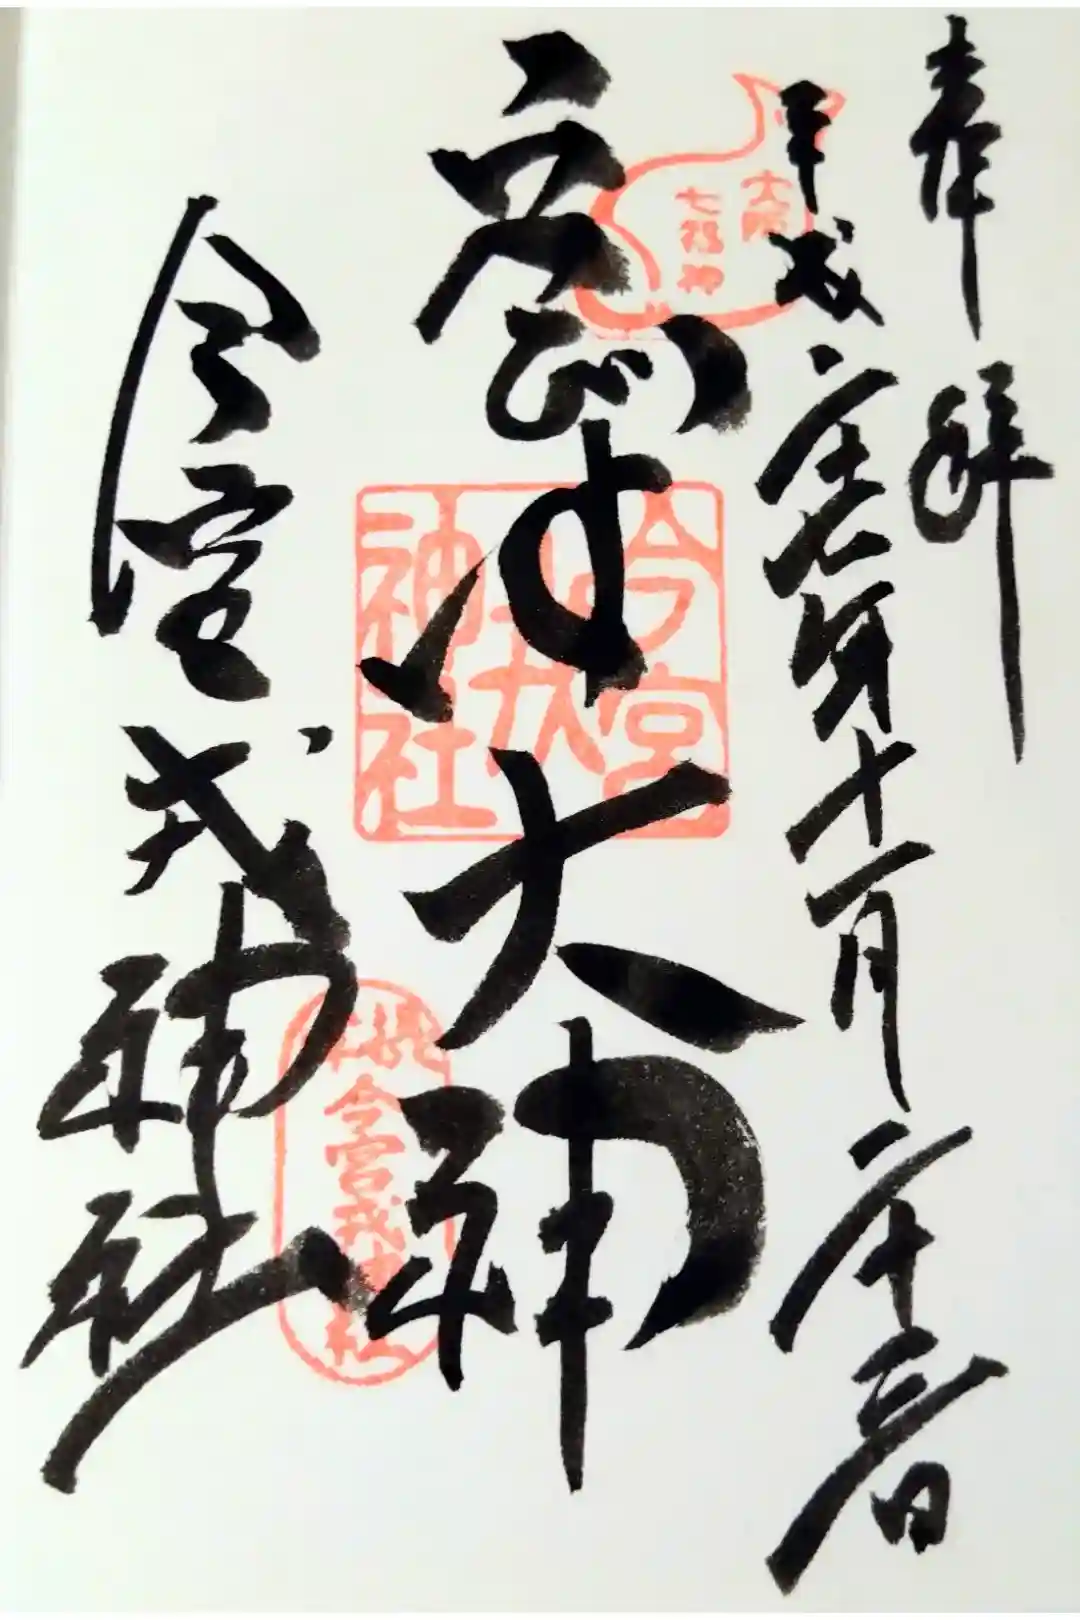 奉拝
平成二十七年十一月二十三日
大阪
七福神
びす大神
今宮
戎
神社
今宮戎神社
今宮戎神社